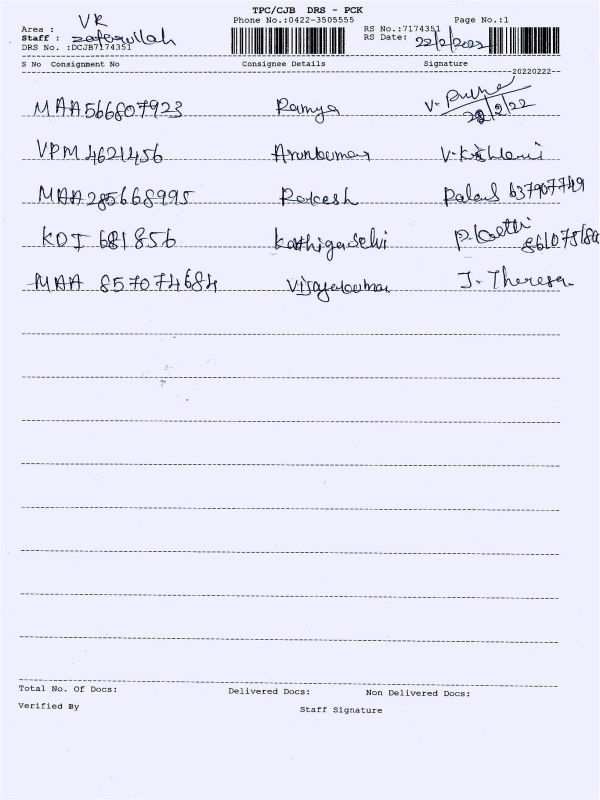 TPC/CJB DRS - PCK
Phone No.:0422-3505555 Page No.:1
Area : VR RS No.:7174351
Staff : zaferullah RS Date: 22/2/2022
DRS No. :DCJB7174351
S No Consignment No Consignee Details Signature
20220222
MAA566807923 Ramya V.
22/2/22
VPM 4621456 Arunkumar
MAA285668995 Rakesh 637907749
KDI 681856 Kathigaselvi
MAA 857074684 Vijayakumar J. Theresa
Total No. Of Docs: Delivered Docs: Non Delivered Docs:
Verified By Staff Signature